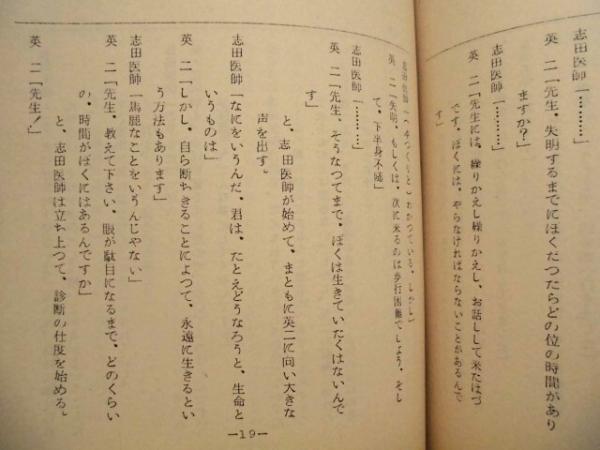 志田医師「………」
英　二「先生、失明するまでにぼくだつたらどの位の時間があり
ますか？」
志田医師「………」
英　二「先生には、繰りかえし繰りかえし、お話しして来たはづ
です。ぼくには、やらなければならないことがあるんで
す」
志田医師「(ゆつくりと)わかつている、しかし」
英　二「失明、もしくは、次に来るのは歩行困難でしよう、そし
て、下半身不随」
志田医師「………」
英　二「先生、そうなつてまで、ぼくは生きていたくはないんで
す」
と、志田医師が始めて、まともに英二に向い大きな
声を出す。
志田医師「なにをいうんだ、君は、たとえどうなろうと、生命と
いうものは」
英　二「しかし、自ら断ちきることによつて、永遠に生きるとい
う方法もあります」
志田医師「馬鹿なことをいうんじやない」
英　二「先生、教えて下さい、眼が駄目になるまで、どのくらい
の、時間がぼくにはあるんですか」
と、志田医師は立ち上つて、診断の仕度を始める。
英　二「先生！」
—19—